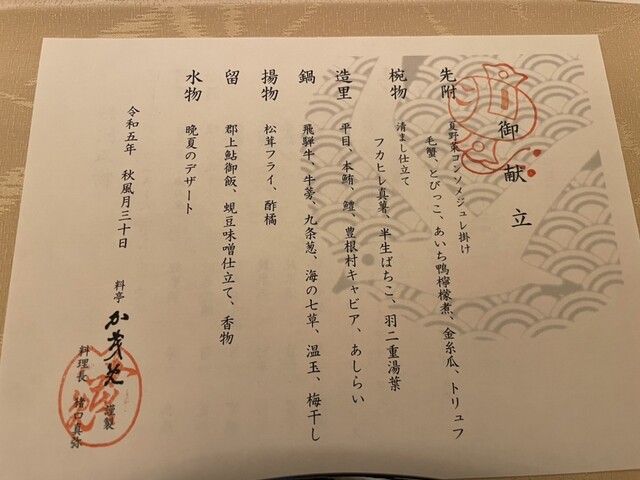 御献立
先附
夏野菜コンソメジュレ掛け
毛蟹、とびっこ、あいち鴨檸檬煮、金糸瓜、トリュフ
椀物
清まし仕立て
フカヒレ真薯、半生ばちこ、羽二重湯葉
造里
平目、本鮪、鱧、豊根村キャビア、あしらい
鍋
飛騨牛、牛蒡、九条葱、海の七草、温玉、梅干し
揚物
松茸フライ、酢橘
留
郡上鮎御飯、蜆豆味噌仕立て、香物
水物
晩夏のデザート
令和五年 秋風月三十日
料亭 か茂免 謹製
料理長 猪口真弥